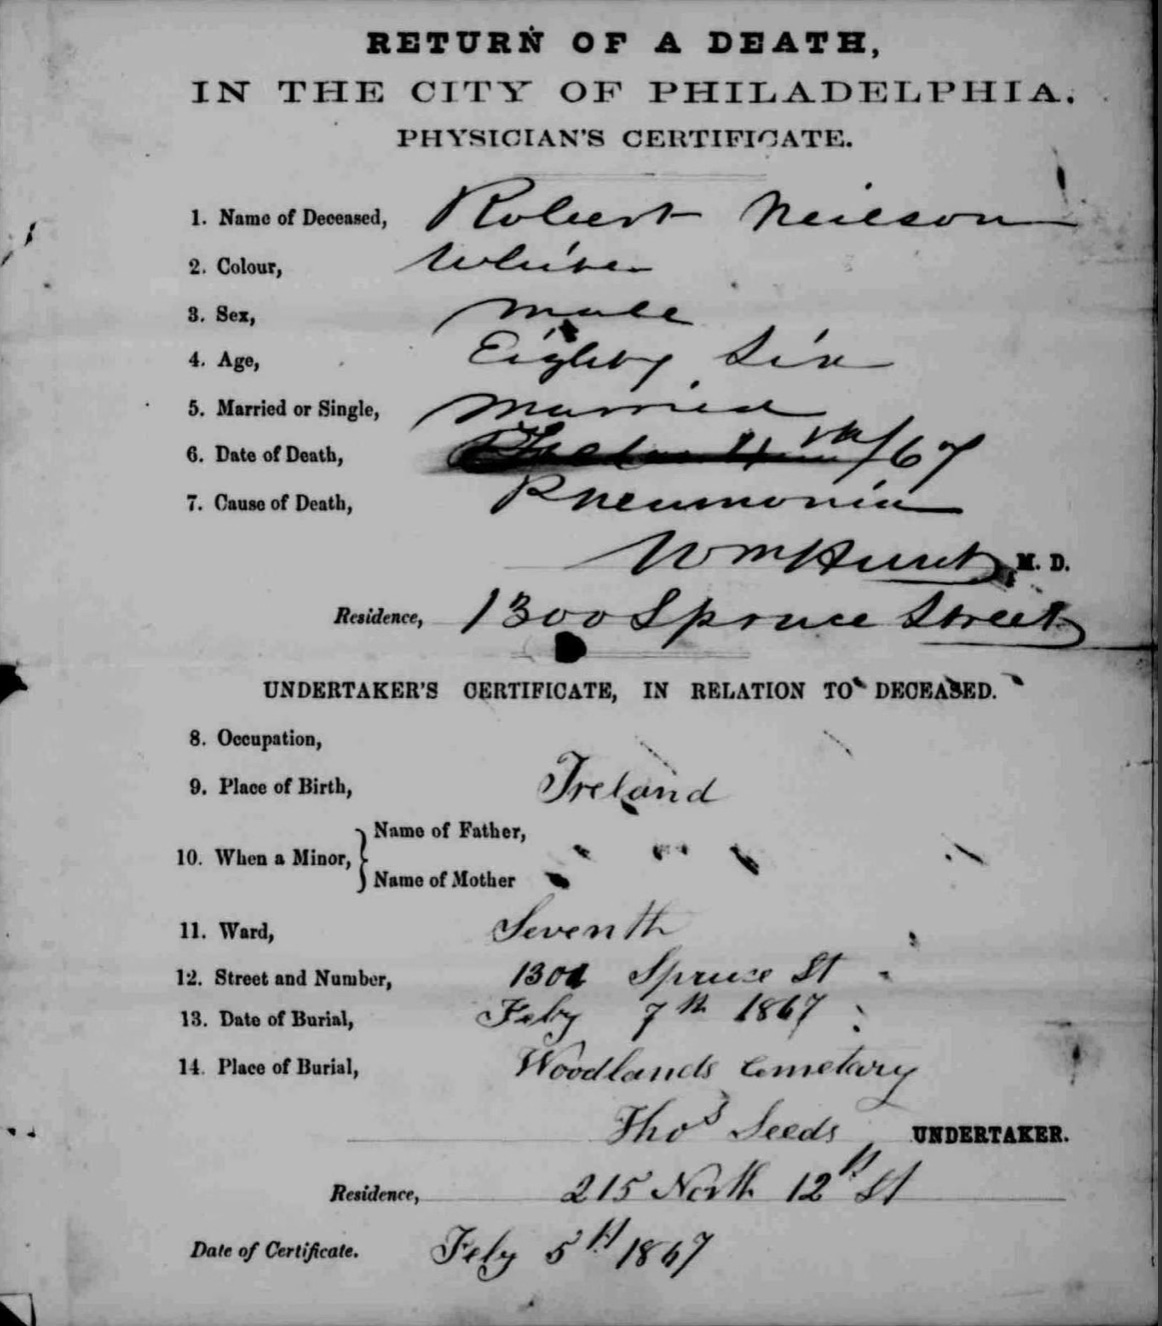 RETURN OF A DEATH,
IN THE CITY OF PHILADELPHIA.
PHYSICIAN'S CERTIFICATE.
1. Name of Deceased, Robert Neilson
2. Colour, White
3. Sex, Male
4. Age, Eighty Six
5. Married or Single, Married
6. Date of Death, 4th/67
7. Cause of Death, Pneumonia
Wm Hunt M. D.
Residence, 1300 Spruce Street
UNDERTAKER'S CERTIFICATE, IN RELATION TO DECEASED.
8. Occupation,
9. Place of Birth, Ireland
Name of Father,
10. When a Minor,
Name of Mother
11. Ward, Seventh
12. Street and Number, Spruce St
13. Date of Burial, Feby 7th 1867
14. Place of Burial, Woodlands Cemetary
Thos Seeds UNDERTAKER.
Residence, 215 North 12th St
Date of Certificate. Feby 5th 1867